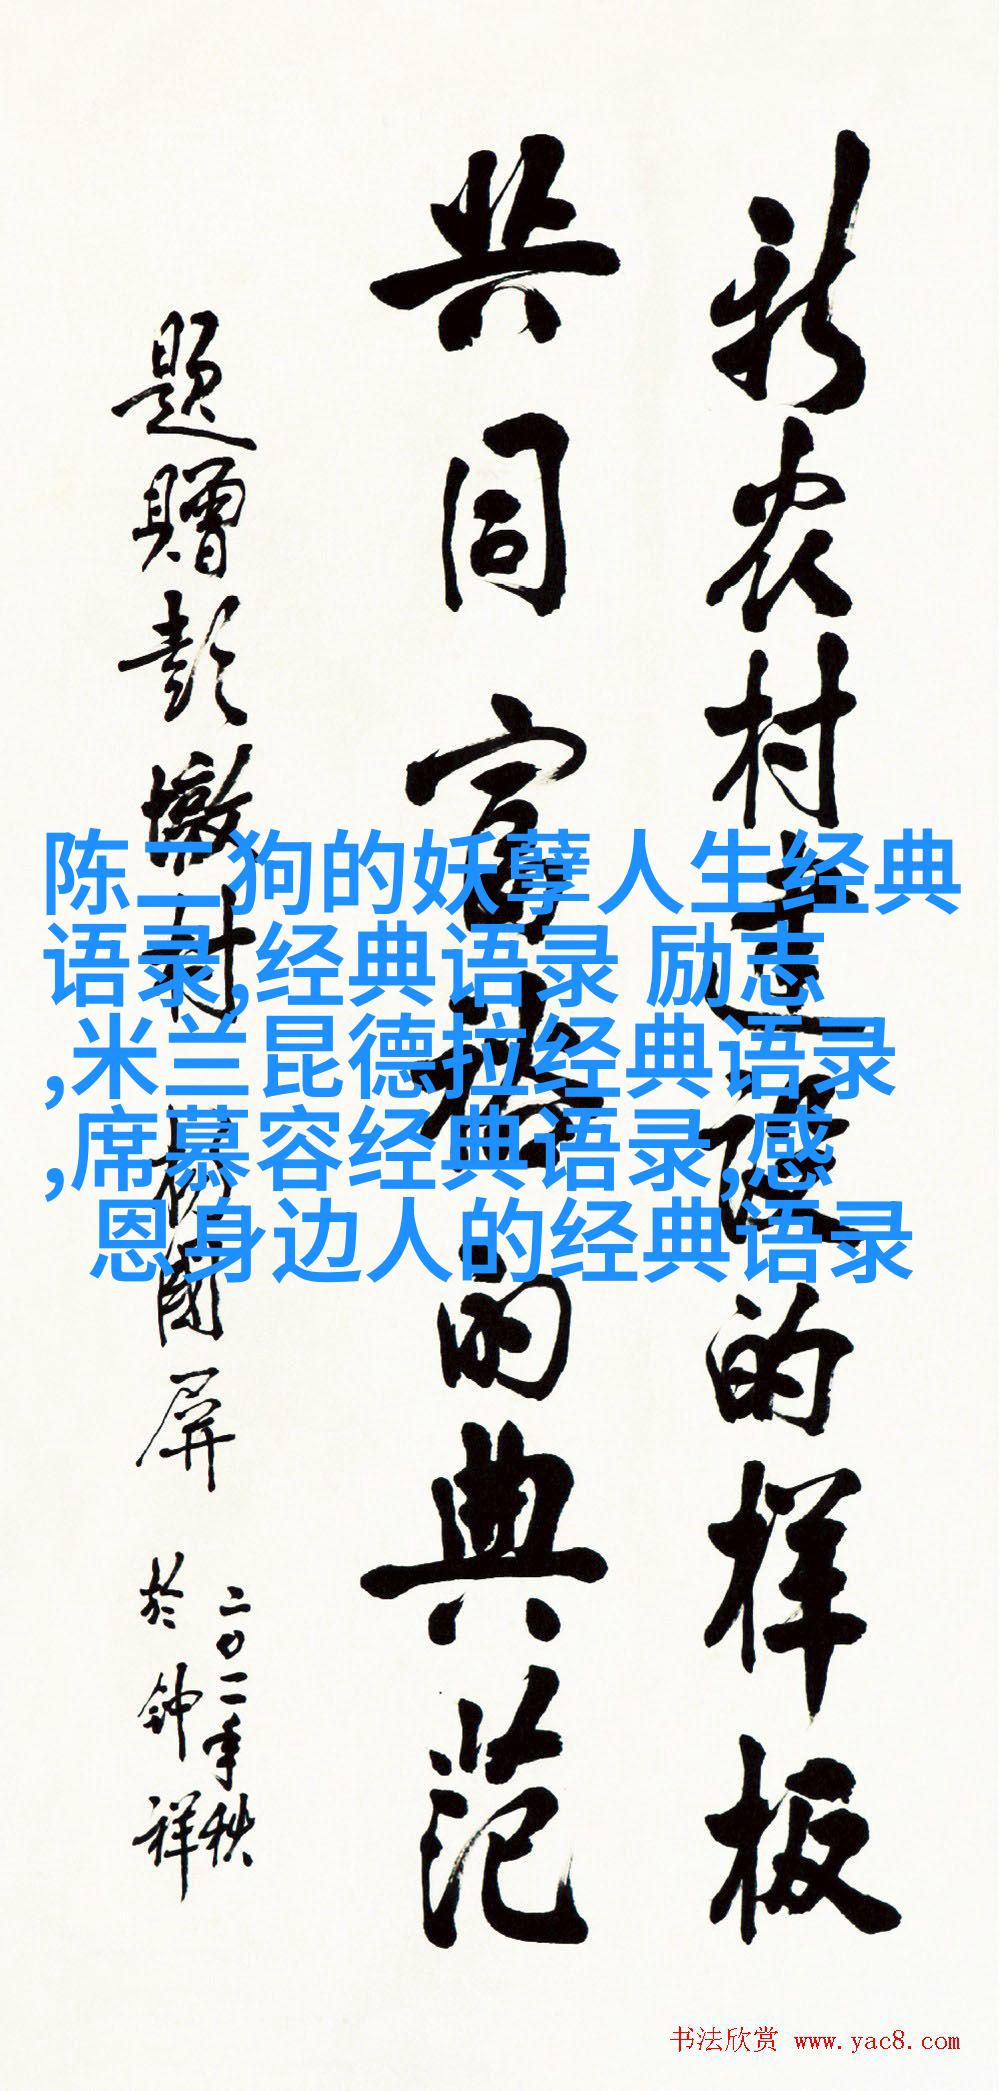 新农村建设的样板
共同富裕的典范
题赠彭墩村 杨国屏
二〇一一年秋
於钟祥
陈二狗的妖孽人生经典
语录,经典语录 励志
,米兰昆德拉经典语录
,席慕容经典语录,感
恩身边人的经典语录
书法欣赏 www.yac8.com